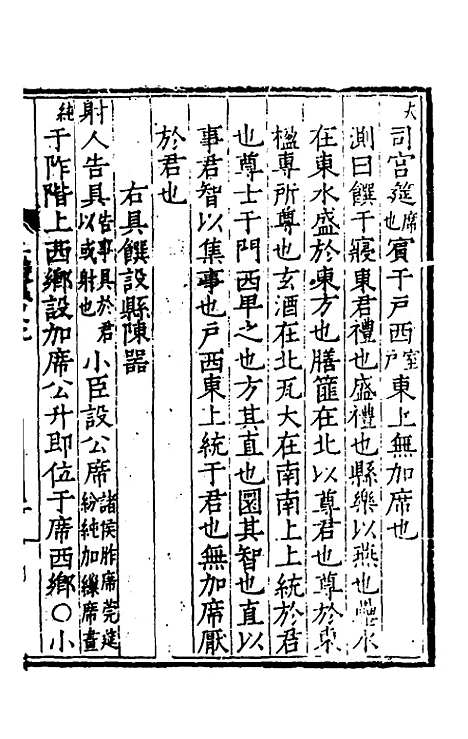 大司宮筵席也賓于戶西室戶東上無加席也
測曰饌于寢東君禮也盛禮也縣樂以燕也罍水
在東水盛於東方也膳篚在北以尊君也尊於東
楹專所尊也玄酒在北瓦大在南南上上統於君
也尊士于門西卑之也方其直也圜其智也直以
事君智以集事也戶西東上統于君也無加席厭
於君也
右具饌設縣陳器
射人告具告事具於君以或射也小臣設公席諸侯胙席莞筵紛純加繅席畫
純于阼階上西鄉設加席公升即位于席西鄉○小